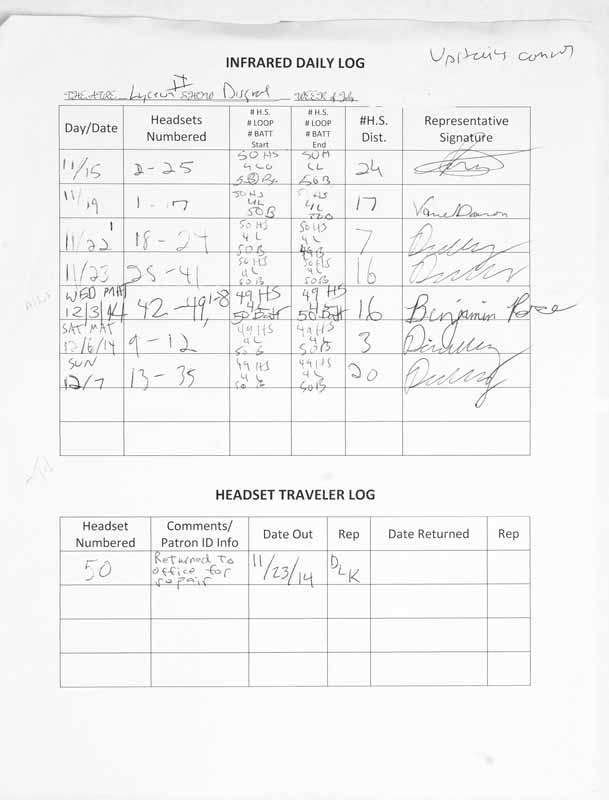 INFRARED DAILY LOG
Upstairs
THEATRE Lyceum II SHOW Disgrad WEEK of
Day/Date Headsets Numbered # H.S. # LOOP # BATT Start # H.S. # LOOP # BATT End #H.S. Dist. Representative Signature
11/15 2-25 50 HS 50 H 24
11/19 1-17 50 HS 4L 50B 4L 17
11/22 18-24 50 HS 4L 50B 50 HS 4L 49B 7
11/23 25-41 50 HS 4L 50B 50 HS 4L 50B 16
WED MAT 12/3/14 42-49, 1-8 49 HS 50 Batt 49 HS 50 Batt 16 Benjamin
SAT MAT 12/6/14 9-12 49 HS 4L 50 B 49 HS 4L 50B 3
SUN 12/7 13-35 49 HS 4L 50 B 49 HS 4L 50B 20
HEADSET TRAVELER LOG
Headset Numbered Comments/ Patron ID Info Date Out Rep Date Returned Rep
50 Returned to office for repair 11/23/14 DLK